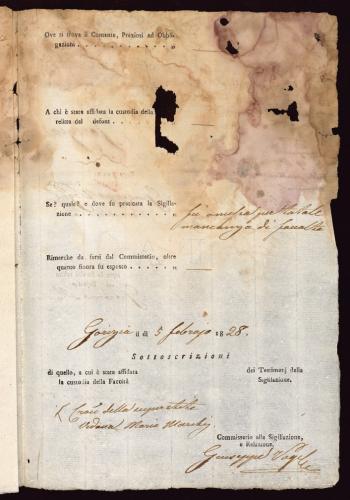 Ove si trova il Contante, Preziosi ad Obbli-
gazioni . . . . . . . . . . . „
A chi è stata affidata la custodia della
relitta del defont . . . . . . . . „
Se? quale? e dove fu praticata la Sigilla-
zione . . . . . . . . . . . . „
fù omessa per totale
mancanza di facoltà
Rimarche da farsi dal Commissario, oltre
quanto finora fu esposto . . . . . „
Gorizia li di 5 febrajo 1828.
Sottoscrizioni
di quello, a cui è stata affidata
la custodia della Facoltà
dei Testimonj della
Sigillazione.
Croce della
Vedova Maria
Commissario alla Sigillazione,
e Relazione.
Giuseppe